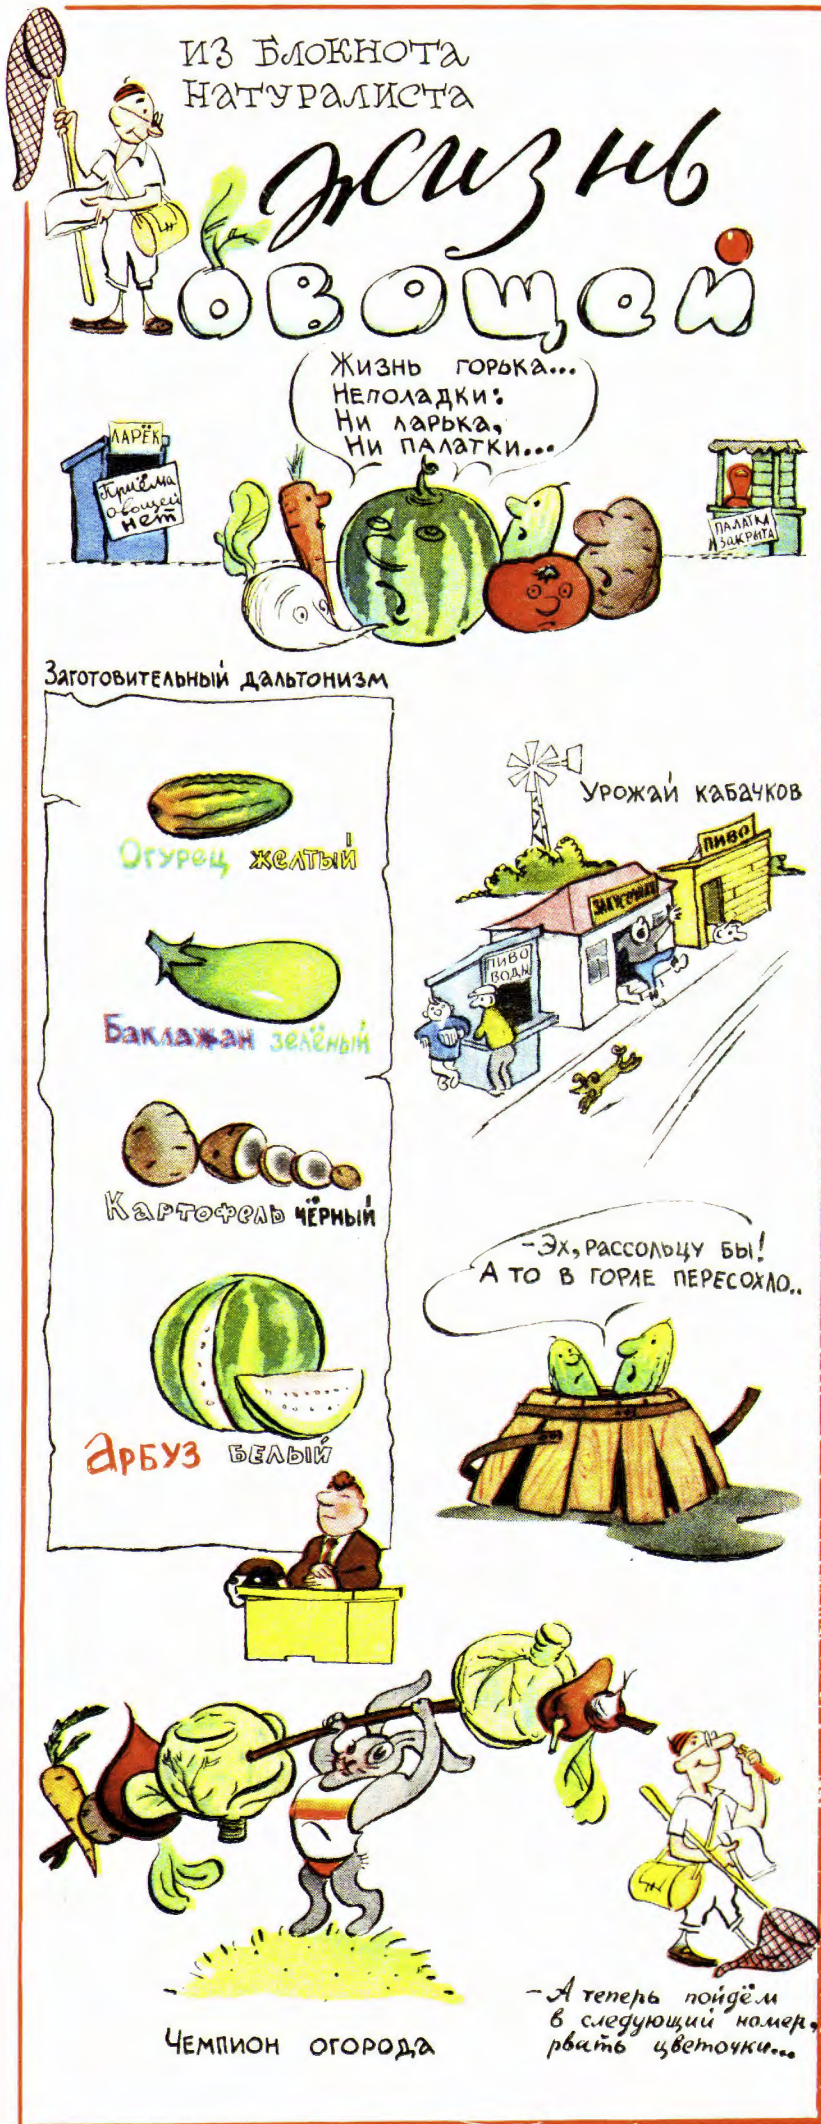 ИЗ БЛОКНОТА
НАТУРАЛИСТА
жизнь
ОВОЩЕЙ
Жизнь горька...
Неполадки:
Ни ларька,
Ни палатки...
ЛАРЁК
Приёма
овощей
нет
ПАЛАТКА
ЗАКРЫТА
Заготовительный дальтонизм
Огурец желтый
Баклажан зелёный
Картофель чёрный
Арбуз белый
Урожай кабачков
ПИВО
ЗАКУСОЧНАЯ
ПИВО
ВОДЫ
-Эх, рассольцу бы!
А то в горле пересохло..
Чемпион огорода
-А теперь пойдём
в следующий номер,
рвать цветочки...